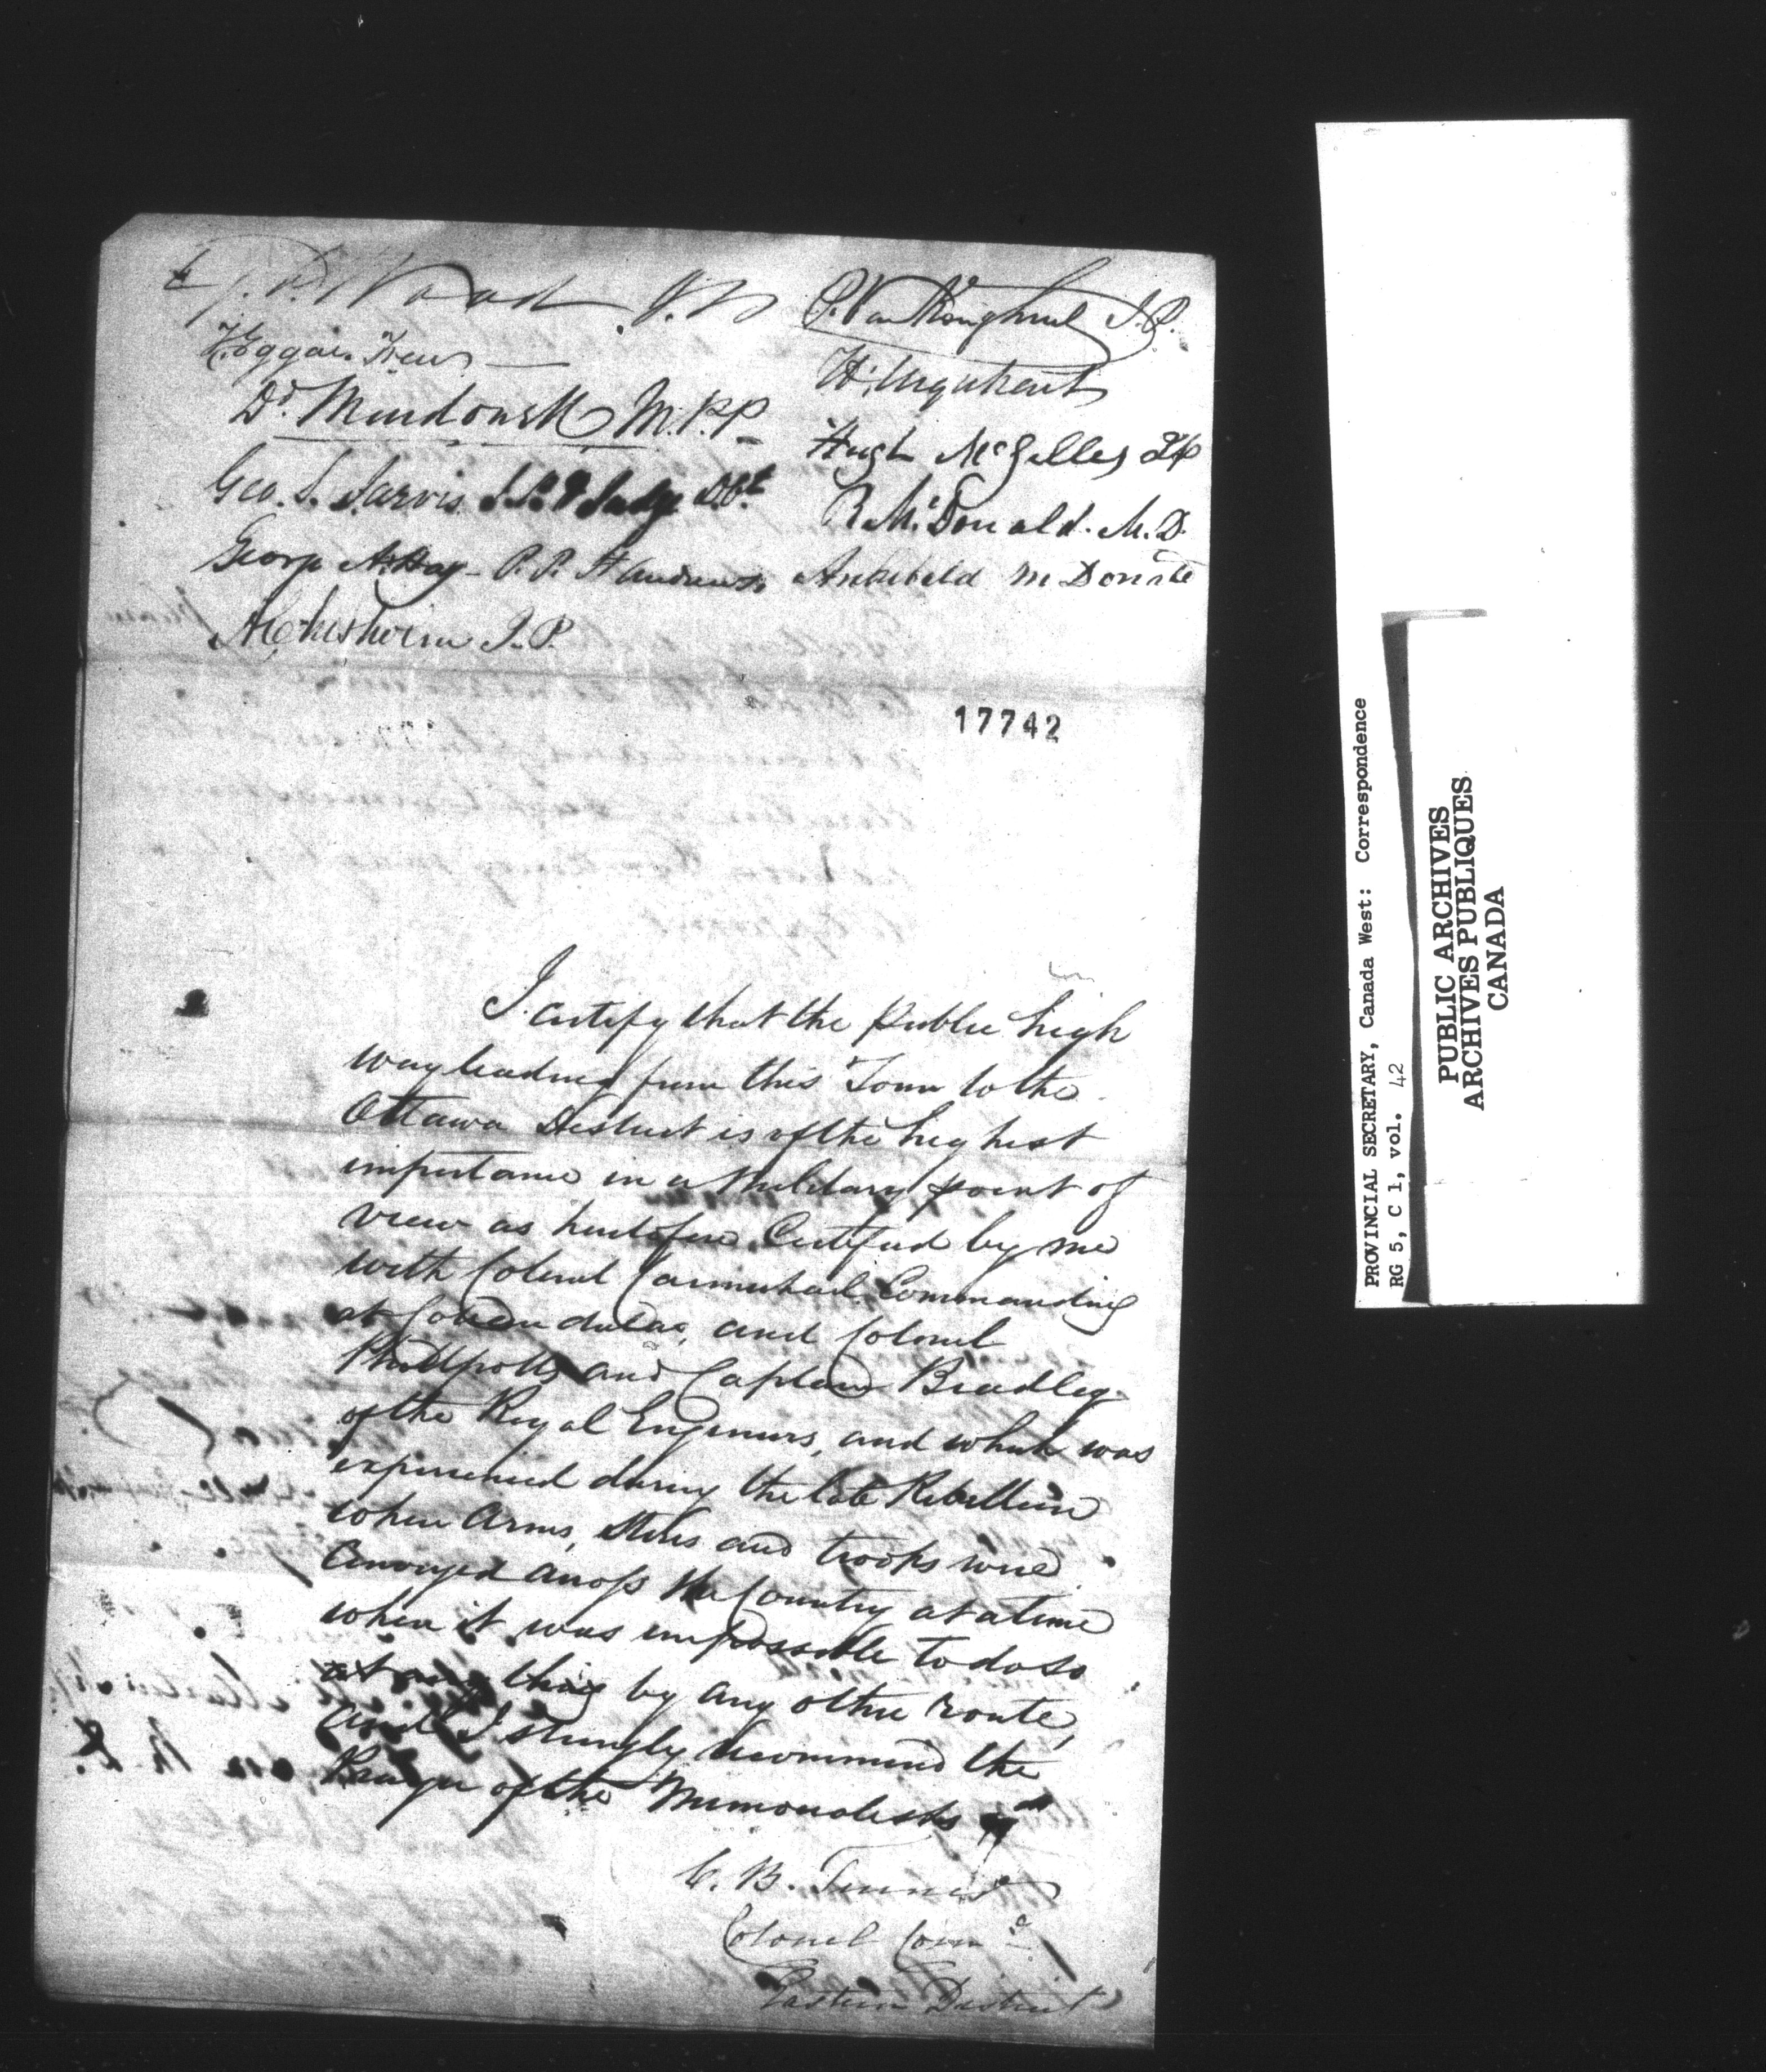 Wood J.P.
P. VanKoughnet J.P.
H. Urquhart
Hugh McGillis JP
R. McDonald. M.D.
Archibald McDonald
Geo. S. Jarvis J.P. & Judge
George A. Hay - P.P. St Andrews.
A Chisholm J.P.
17742
I certify that the public high
way leading from this Town to the
Ottawa District is of the highest
importance in a Military point of
view as heretofore Certified by me
with Colonel Carmichael Commanding
at Coteau du Lac, and Colonel
Phillpotts and Captain Bradley
of the Royal Engineers, and which was
experienced during the late Rebellion
when Arms, Stores and troops were
Conveyed across the Country at a time
when it was impossible to do so
by any other route,
and I strongly recommend the
Prayer of the Memorialists
C. B. Turner
Colonel Comg
Eastern District
PROVINCIAL SECRETARY, Canada West: Correspondence
RG 5, C 1, vol. 42
PUBLIC ARCHIVES
ARCHIVES PUBLIQUES
CANADA